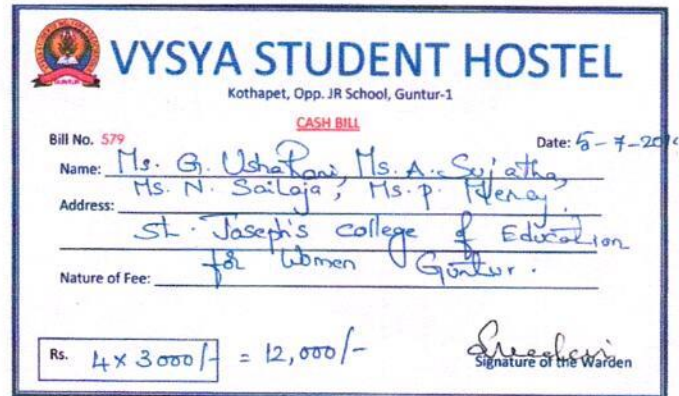 VYSYA STUDENT HOSTEL
Kothapet, Opp. JR School, Guntur-1
CASH BILL
Bill No. 579 Date: 5-7-2019
Name: Ms. G. Usha Rani, Ms. A. Sujatha,
Ms. N. Sailaja, Ms. P.
Address:
St. Joseph's college of Education
for Women Guntur.
Nature of Fee:
Rs. 4 x 3000/- = 12,000/-
Signature of the Warden